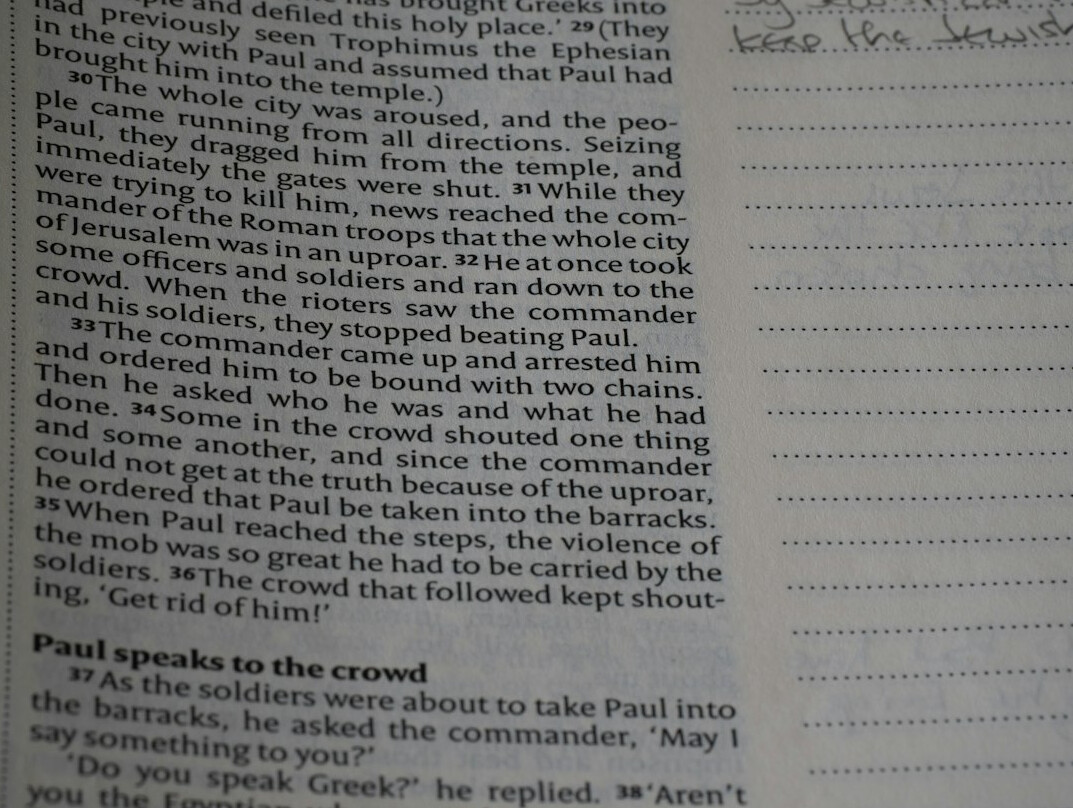 brought Greeks into
and defiled this holy place.' 29 (They
had previously seen Trophimus the Ephesian
in the city with Paul and assumed that Paul had
brought him into the temple.)
30 The whole city was aroused, and the peo-
ple came running from all directions. Seizing
Paul, they dragged him from the temple, and
immediately the gates were shut. 31 While they
were trying to kill him, news reached the com-
mander of the Roman troops that the whole city
of Jerusalem was in an uproar. 32 He at once took
some officers and soldiers and ran down to the
crowd. When the rioters saw the commander
and his soldiers, they stopped beating Paul.
33 The commander came up and arrested him
and ordered him to be bound with two chains.
Then he asked who he was and what he had
done. 34 Some in the crowd shouted one thing
and some another, and since the commander
could not get at the truth because of the uproar,
he ordered that Paul be taken into the barracks.
35 When Paul reached the steps, the violence of
the mob was so great he had to be carried by the
soldiers. 36 The crowd that followed kept shout-
ing, 'Get rid of him!'
Paul speaks to the crowd
37 As the soldiers were about to take Paul into
the barracks, he asked the commander, 'May I
say something to you?'
'Do you speak Greek?' he replied. 38 'Aren't
you the Egyptian
keep the Jewish